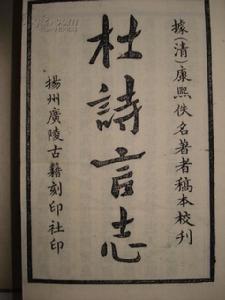 據(清)康熙佚名著者稿本校刊
杜詩言志
揚州廣陵古籍刻印社印